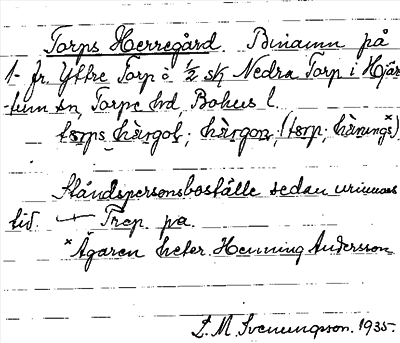 Torps Herregård. Binamn på
1- fr. Yttre Torp o ½ sk Nedra Torp i Hjär-
tum sn, Torpe hd, Bohus l.
torps hàrgoḷ; hàrgoṇ; (torp; hànings ˣ)
Ståndspersonsboställe sedan urminnes
tid. — Trep. pa.
ˣ Ägaren heter Henning Andersson
L. M. Svenungsson. 1935.